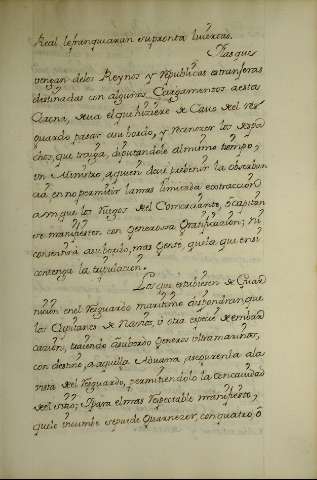 Real le franquearan su pronta livertad.
Las que
vengan delos Reynos y republicas estranjeras
destinadas con algunos Cargamentos a esta
sera el que hiziere de Cavo del res
guardo pasar asu bordo, y reconocer los despa
chos, que trayga, diputandole al mismo tiempo,
un Ministro aquien deve prebenir la obserban
cia en no permitir la mas limitada extraccion
aunque los ruegos del Comerciante, ò Capitan
se manifiesten con generosa Gratificacion; ni
consentirà asu bordo, mas Gente, que la que en sì
contenga la tripulacion.
Los que estubiesen de Guar
nicion en el Resguardo maritimo dispondran que
los Capitanes de Navios, ù otra especie de embar
cazion, trayendo àsubordo generos ultramarinos,
con destino, a aquella Aduana, ala
vista del Resguardo, permitiendolo la concavidad
del sitio; Y para el mas respectable manifiesto,
quele incumbe se puede Guarnezer, con quatro, ò